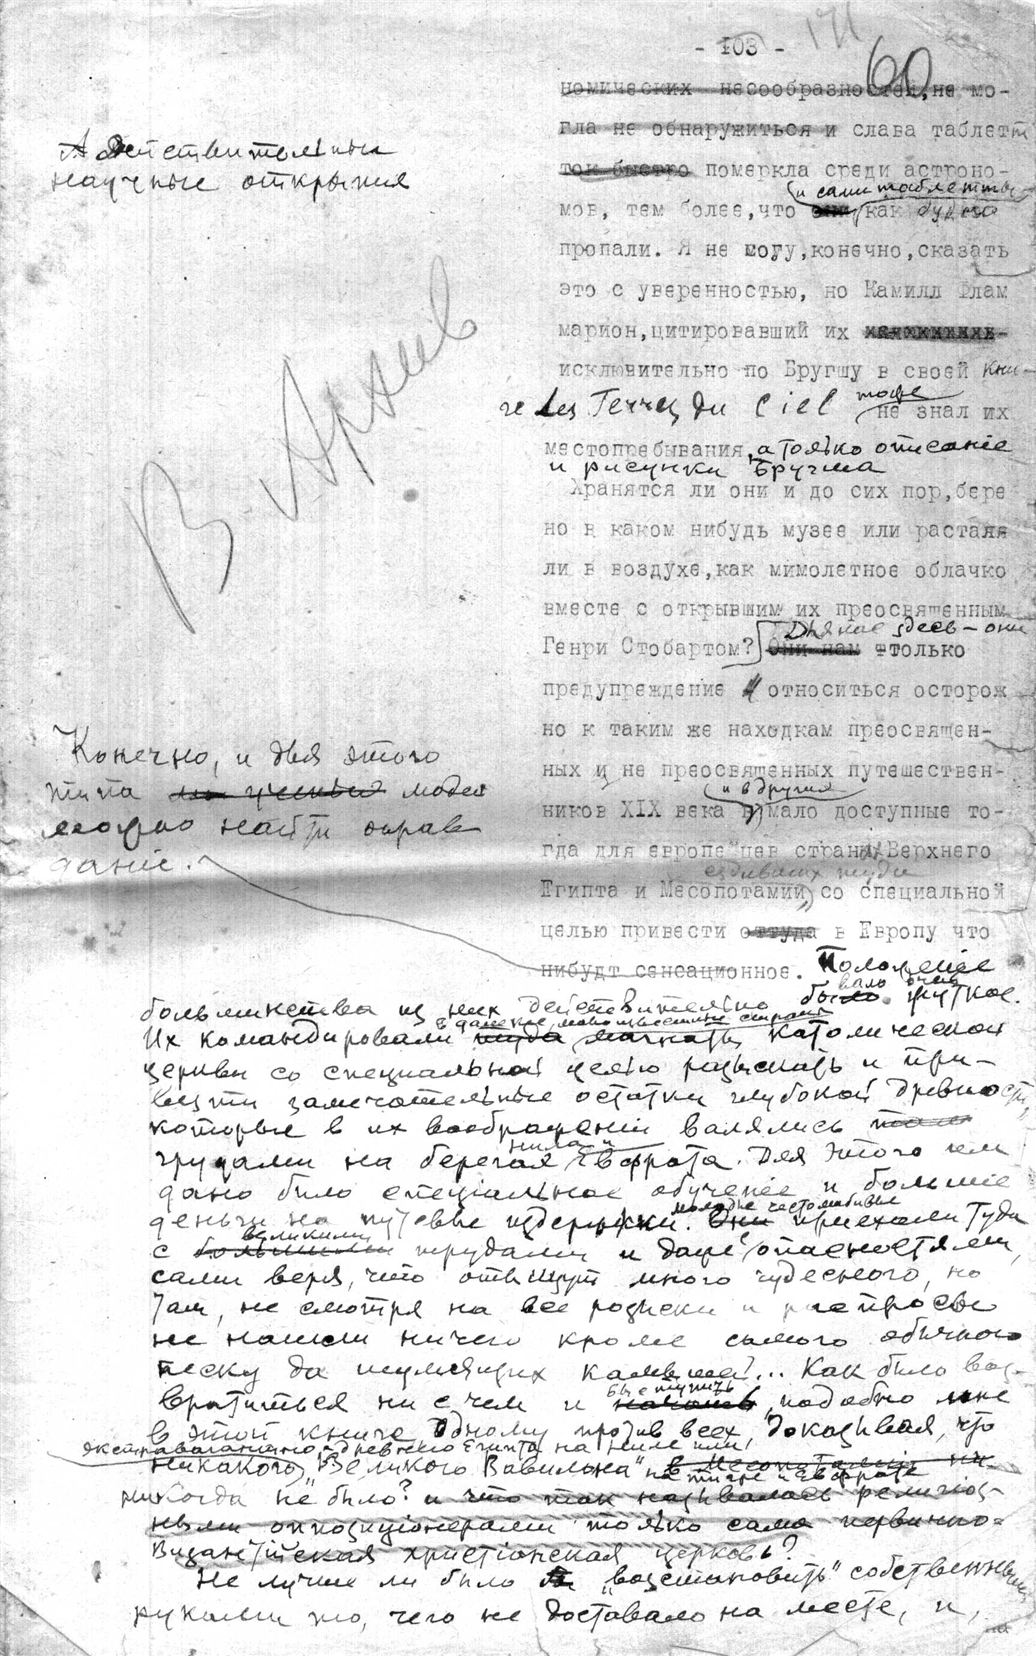 - 103 -
171
60
номических несообразностей, не мо-
гла не обнаружиться и слава таблетт
А действительныя
научные открытия
ток быстро померкла среди астроно-
и сами таблетты
мов, тем более,что они как будто
пропали. Я не могу,конечно,сказать
это с уверенностью, но Камилл Флам
марион,цитировавший их
исключительно по Бругшу в своей кни-
ге Les Terres du Ciel тоже не знал их
местопребывания, а только описание
и рисунки Бругша
Хранятся ли они и до сих пор,бере
но в каком нибудь музее или растаяя
ли в воздухе,как мимолетное облачко
вместе с открывшим их преосвященным
Для нас здесь — они
Генри Стобартом? Они нам только
предупреждение относиться осторож
но к таким же находкам преосвящен-
ных и не преосвященных путешествен-
и в другия
ников XIX века в мало доступные то-
гда для европейцев страны Верхнего
ездивших туда
Египта и Месопотамии, со специальной
целью привести оттуда в Европу что
нибудт сенсационное. Положение
В. Архив
Конечно, и для этого
типа людей
можно найти оправ
дание.
большинства из них действительно бывало очень жуткое.
в далекие, малоизвестные страны
Их командировали туда магнаты католической
церкви со специальной целью разыскать и при-
везти замечательные остатки глубокой древности
которые в их воображении валялись там
грудами на берегах Нила и Евфрата. Для этого им
дано было специальное обучение и большие
молодые честолюбивые
деньги на путевые издержки. Они приехали туда
великими
с большими трудами и даже опасностями,
сами веря, что отыщут много чудесного, но
там, не смотря на все розыски и распросы
не нашли ничего кроме самого обычного
песку да шумящих камышей... Как было воз-
вратиться ни с чем и выступить, подобно мне
в этой книге одному против всех, доказывая, что
экстравагантно-древнего Египта на Ниле или
никакого „Великого Вавилона" в Месопотамии ни
на Тигре и Евфрате
никогда не было? и что так называлась религиоз-
ными оппозиционерами только сама первично-
Византийская христианская церковь?
Не лучше ли было „возстановить" собственными
руками то, чего не доставало на месте, и,